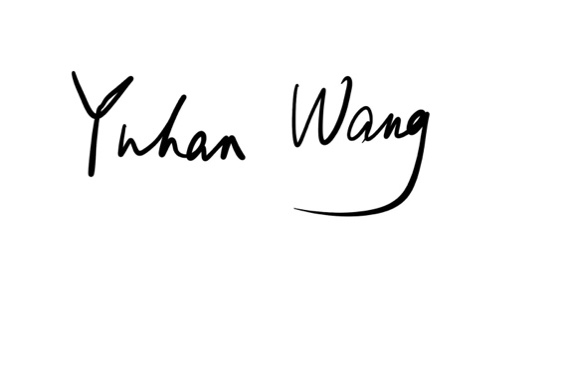 Yuhan Wang